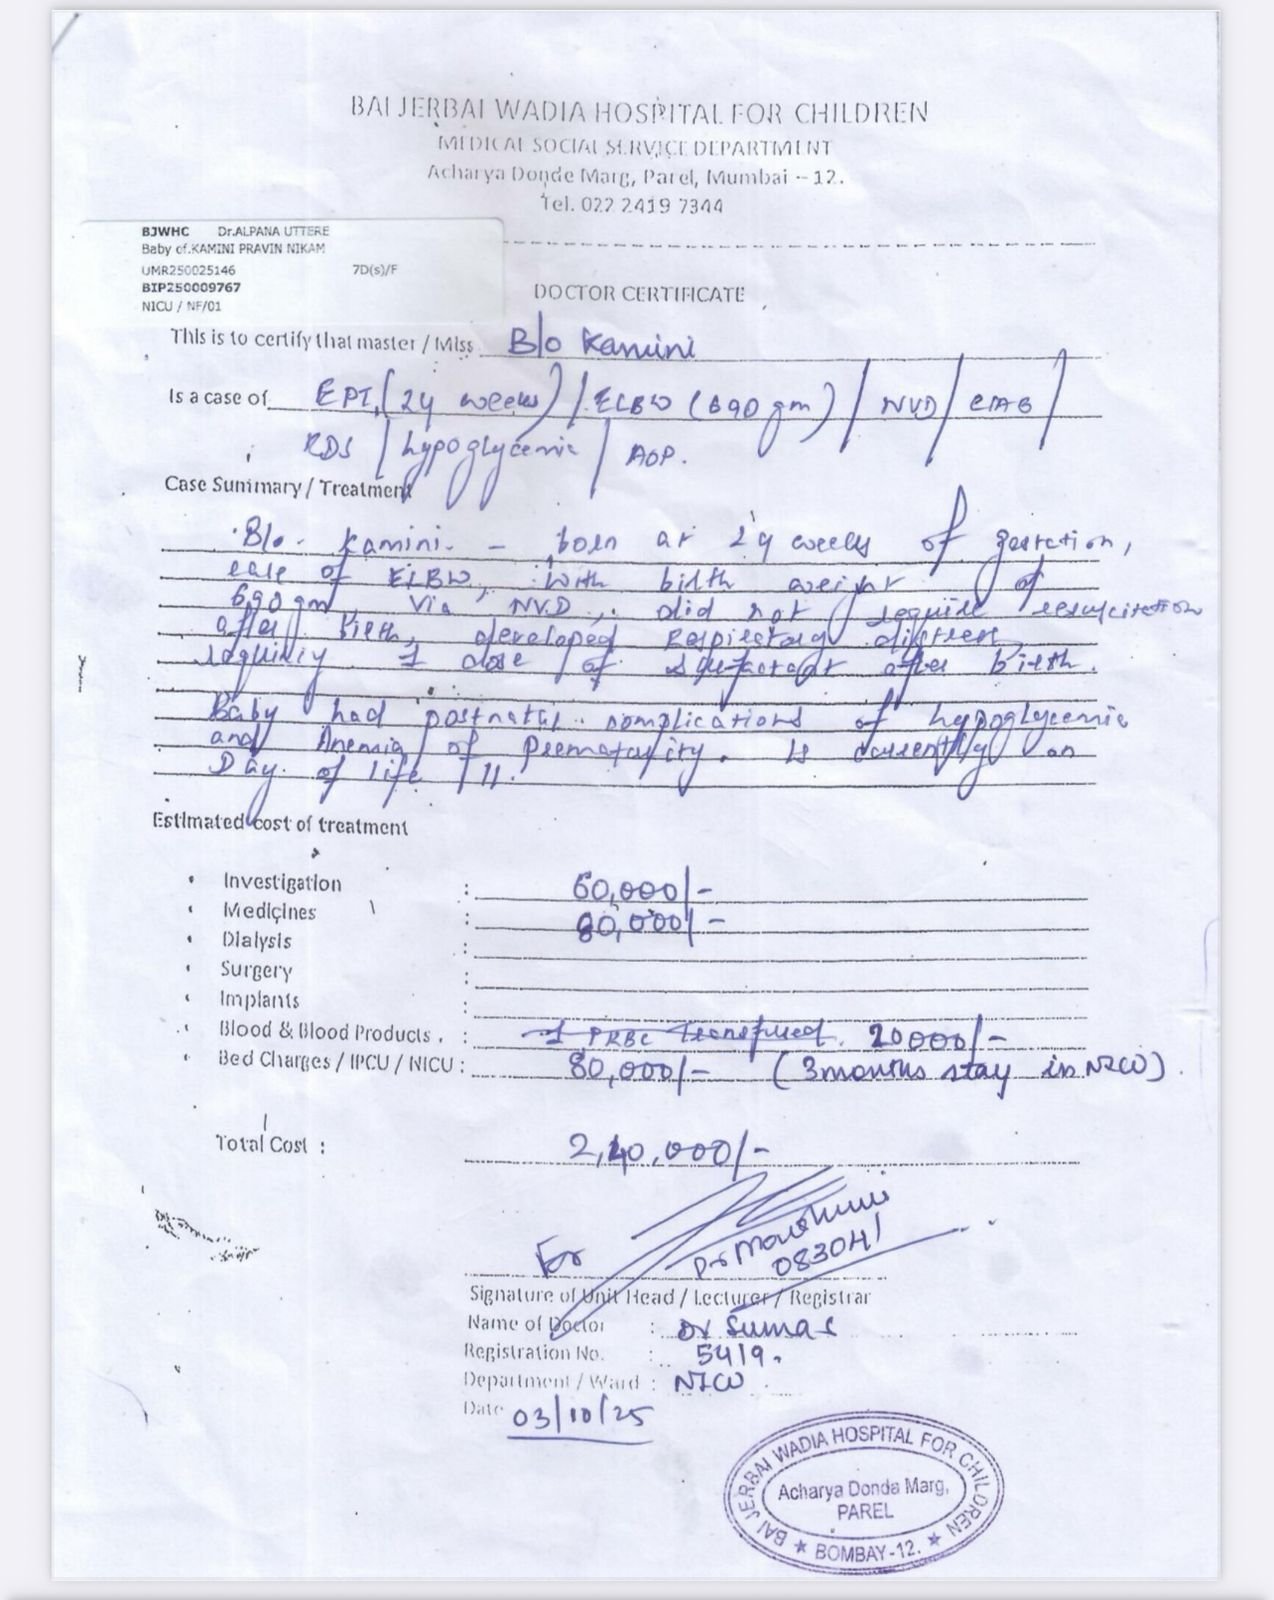 BAI JERBAI WADIA HOSPITAL FOR CHILDREN
MEDICAL SOCIAL SERVICE DEPARTMENT
Acharya Donde Marg, Parel, Mumbai – 12.
Tel. 022 2419 7344
BJWHC Dr.ALPANA UTTERE
Baby of.KAMINI PRAVIN NIKAM
UMR250025146 7D(s)/F
BIP250009767
NICU / NF/01
DOCTOR CERTIFICATE
This is to certify that master / Miss B/o Kamini
Is a case of EPT, (24 weeks) / ELBW (690 gm) / NVD / CIAB /
RDS / hypoglycemia / AOP.
Case Summary / Treatment
B/o. Kamini. - born at 24 weeks of gestation,
case of ELBW, with birth weight of
690 gm, via NVD, did not require resuscitation
after birth, developed Respiratory distress
requiring 1 dose of surfactant after birth.
Baby had postnatal complications of hypoglycemia
and Anemia of Prematurity. Is currently on
Day of life 11.
Estimated cost of treatment
• Investigation : 60,000/-
• Medicines : 80,000/-
• Dialysis :
• Surgery :
• Implants :
• Blood & Blood Products . : 1 PRBC transfused. 20000/-
• Bed Charges / IPCU / NICU : 80,000/- (3 months stay in NICU).
Total Cost : 2,40,000/-
For Dr
083041
Signature of Unit Head / Lecturer / Registrar
Name of Doctor : Dr Suma
Registration No. : 5419.
Department / Ward : NICU
Date 03/10/25
BAI JERBAI WADIA HOSPITAL FOR CHILDREN
Acharya Donde Marg,
PAREL
★ BOMBAY-12. ★